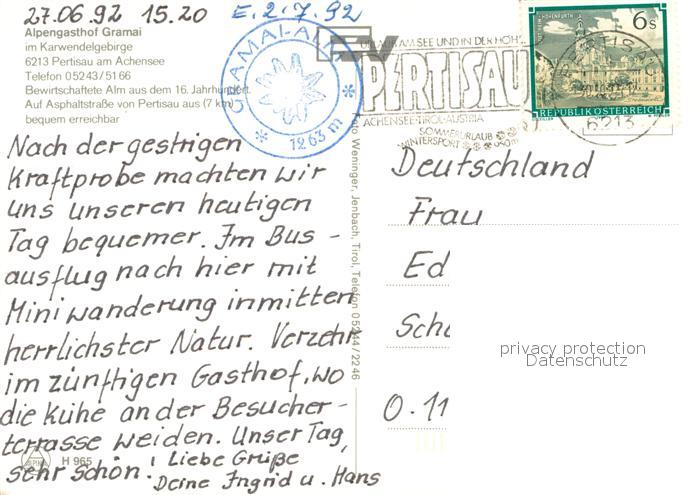 27.06.92 15.20 E.2.7.92
Alpengasthof Gramai
im Karwendelgebirge
6213 Pertisau am Achensee
Telefon 05243/5166
Bewirtschaftete Alm aus dem 16. Jahrhundert
Auf Asphaltstraße von Pertisau aus (7 km)
bequem erreichbar
GRAMAI-ALM
1263 m
AM SEE UND IN DER HÖH
PERTISAU
ACHENSEE-TIROL-AUSTRIA
SOMMERURLAUB
WINTERSPORT
6s
REPUBLIK ÖSTERREICH
PERTISAU
6213
Nach der gestrigen
Kraftprobe machten wir
uns unseren heutigen
Tag bequemer. Im Bus-
ausflug nach hier mit
Miniwanderung inmitten
herrlichster Natur. Verzehr
im zünftigen Gasthof, wo
die Kühe an der Besucher-
terrasse weiden. Unser Tag,
sehr schön! Liebe Grüße
Deine Ingrid u. Hans
H 965
Foto Weninger, Jenbach, Tirol, Telefon 05244/2246
Deutschland
Frau
Ed
Sch
O.11
privacy protection
Datenschutz